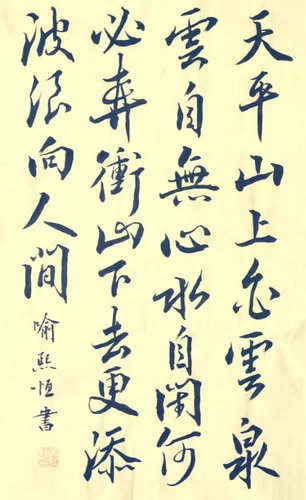 天平山上白雲泉
雲自無心水自閑何
必奔衝山下去更添
波浪向人間
喻熙恒書